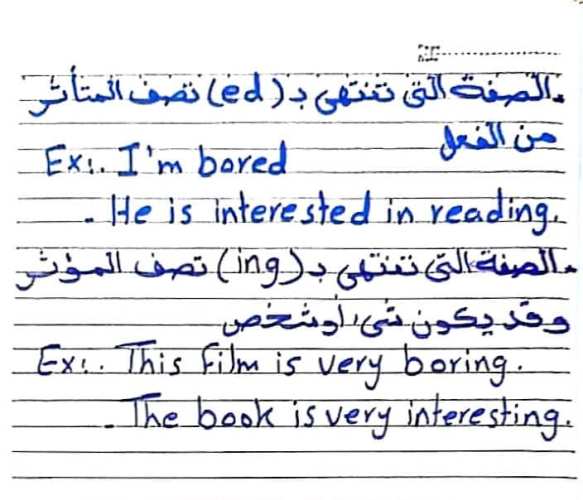 . الصفة التى تنتهى بـ (ed) تصف المتأثر
من الفعل
Ex:. I'm bored
. He is interested in reading.
. الصفة التى تنتهى بـ (ing) تصف المؤثر
وقد يكون شىء أو شخص
Ex:. This film is very boring.
. The book is very interesting.